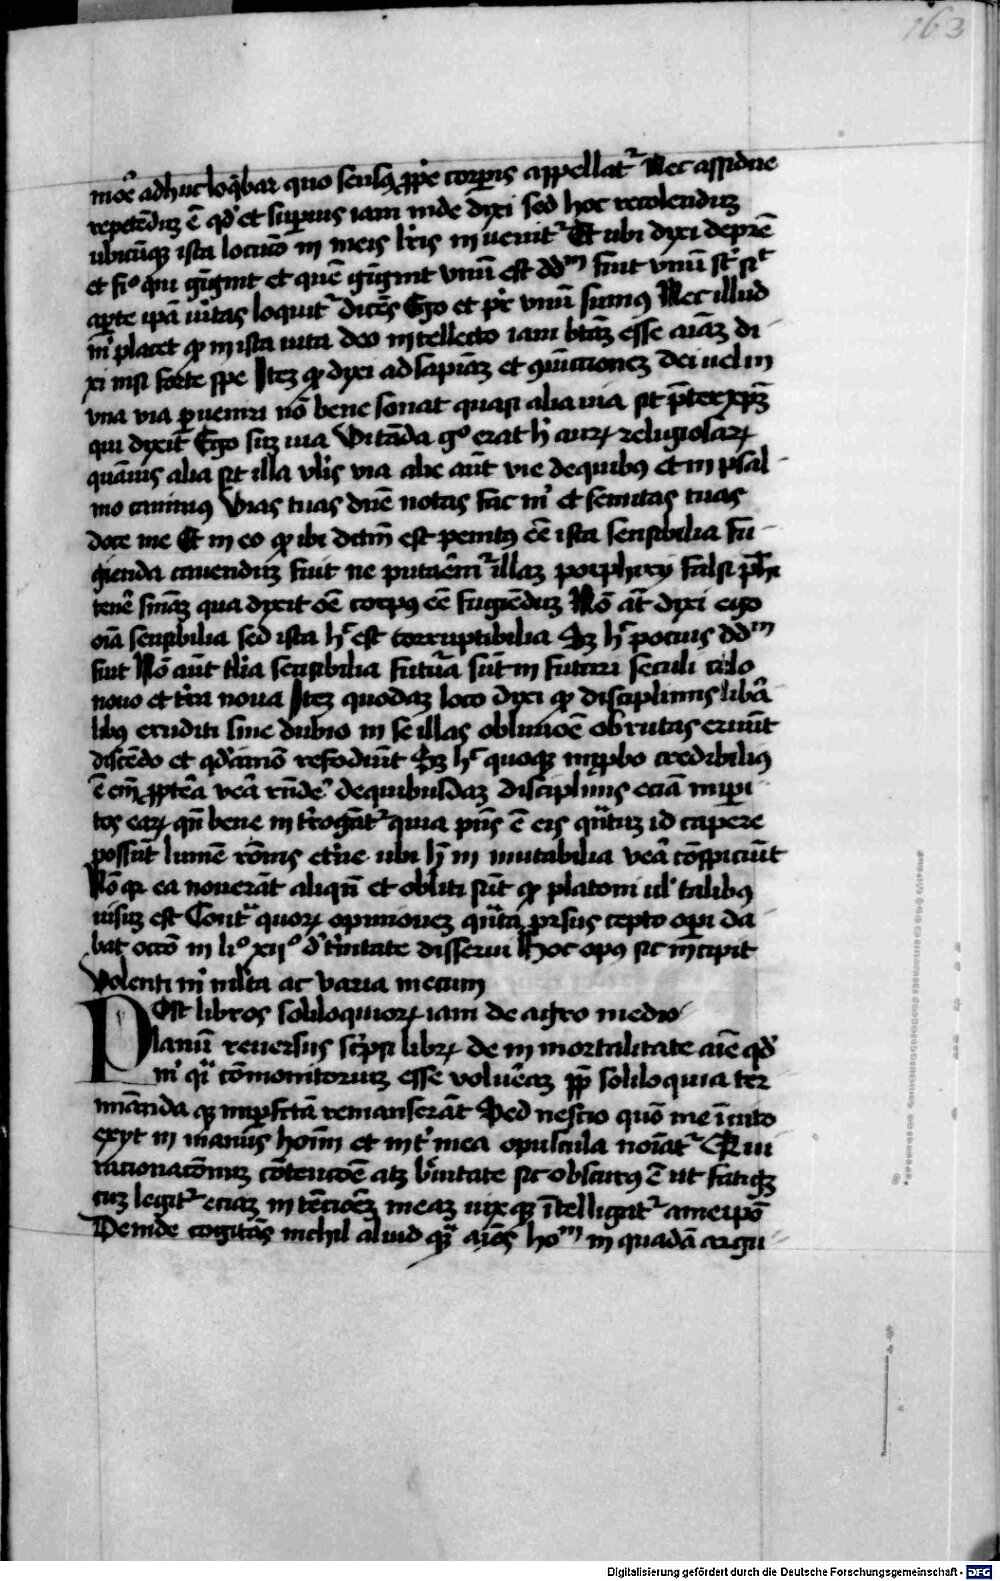 163
moē adhuc loq̄bar quo sensꝰ ꝓpe corꝑis appellatᷣ Nec assidue
repetēdū ē qđ et suꝑius iam inde dyxi sed hoc recolendum
ubicūqꝫ ista locucō in meis lris in uenitᷣ Et ubi dyxi de pr̄e
et fiͦ qui gignit et quē gignit vnū est ddᵐ fuit vnū st sᵗ
aꝑte ipā uītas loquitᷣ dicēs Ego et pr̄ vnū sumꝰ Nec illud
m̄ placet ꝙ in ista uita deo intellecto iam btāꝫ esse aīaꝫ di-
xi nisi forte spe Iteꝫ ꝙ dyxi ad sapiaꝫ et ꝯiūccioneꝫ dei uel in
vna via ꝑueniri nō bene sonat quasi alia uia sit pter xpꝫ
qui dyxit Ego suꝫ uia Vitāda gͦ erat h̄ auꝝ religiosaꝝ
quāuis alia sit illa vl̄is via alie aūt vie de quibꝰ et in psal-
mo canimꝰ Vias tuas dn̄e notas fac m̄ et semitas tuas
doce me Et in eo ꝙ ibi dctm̄ est penitꝰ eē ista sensibilia fu-
gienda cauenduꝫ fuit ne putarēmᷣ illaꝫ porphirij falsi ph̄i
tenē sn̄iaꝫ qua dyxit oē corpꝰ eē fugiēduꝫ Nō aūt dyxi ego
oīa sensibilia sed ista h̄ est corruptibilia Sꝫ h̄ pocius ddᵐ
fuit Nō aūt tl̄ia sensibilia futūa sūt in futuri seculi celo
nouo et tr̄a noua Iteꝫ quodaꝫ loco dyxi ꝙ disciplinis libā-
libꝰ eruditi sine dubio in se illas obliuioē obrutas eruūt
discēdo et qđāmō refodiūt Sꝫ h̄ quoqꝫ inꝓbo credibiliꝰ
ē em̄ ꝓpt̄ea vēa rn̄dē de quibusdaꝫ disciplinis eciā imperi-
tos eaꝝ qn̄ bene introgātᷣ quia pn̄s ē eis qn̄tuꝫ id capere
possūt lumē rōnis et̄ne ubi h̄ in mutabilia vēa cōspiciūt
Nō qꝛ ea nouerāt aliqn̄ et obliti sūt ꝙ platoni ul̄ talibꝰ
uisuꝫ est Contᷓ quoꝝ opinioneꝫ qn̄ta ꝓ rsus cepto oꝑi da-
bat occō in liͦ xijͦ d̄ tīnitate disserui Hoc opꝰ sic incipit
Volenti m̄ ml̄ta ac varia mecum
Post libros soliloquioꝝ iam de agro medio-
lanū reuersus scpsi libꝝ de in mortalitate aīe qđ
m̄ qᷓ cōmonitoriuꝫ esse voluēaꝫ ꝓpt soliloquia ter
minānda qꝫ imꝑfctā remanserāt Sed nescio quō me īuito
exyt in manus hoīm et intᷣ mea opuscula noīatᷣ Qui
racionacōnuꝫ cōtencōe atqꝫ b̄uitate sic obscurꝰ ē ut fatigꝫ
cuꝫ legitᷣ eciaꝫ in tēcioēꝫ meaꝫ uixqꝫ ītelligatᷣ a me ipō
Deinde cogitās nichil aliud qᷓ aīas hoᵐ in quadā argu-
Digitalisierung gefördert durch die Deutsche Forschungsgemeinschaft - DFG